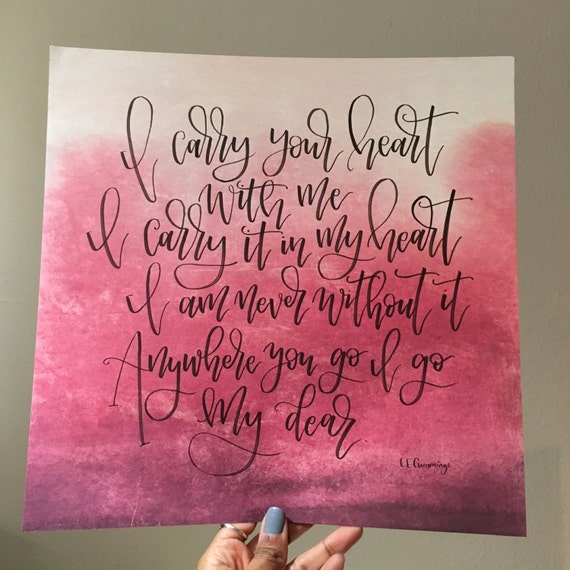 I carry your heart
with me
I carry it in my heart
I am never without it
Anywhere you go I go
My dear
E E Cummings